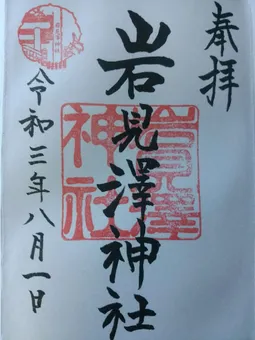 奉拝
岩見澤神社
令和三年八月一日
岩見澤
神社